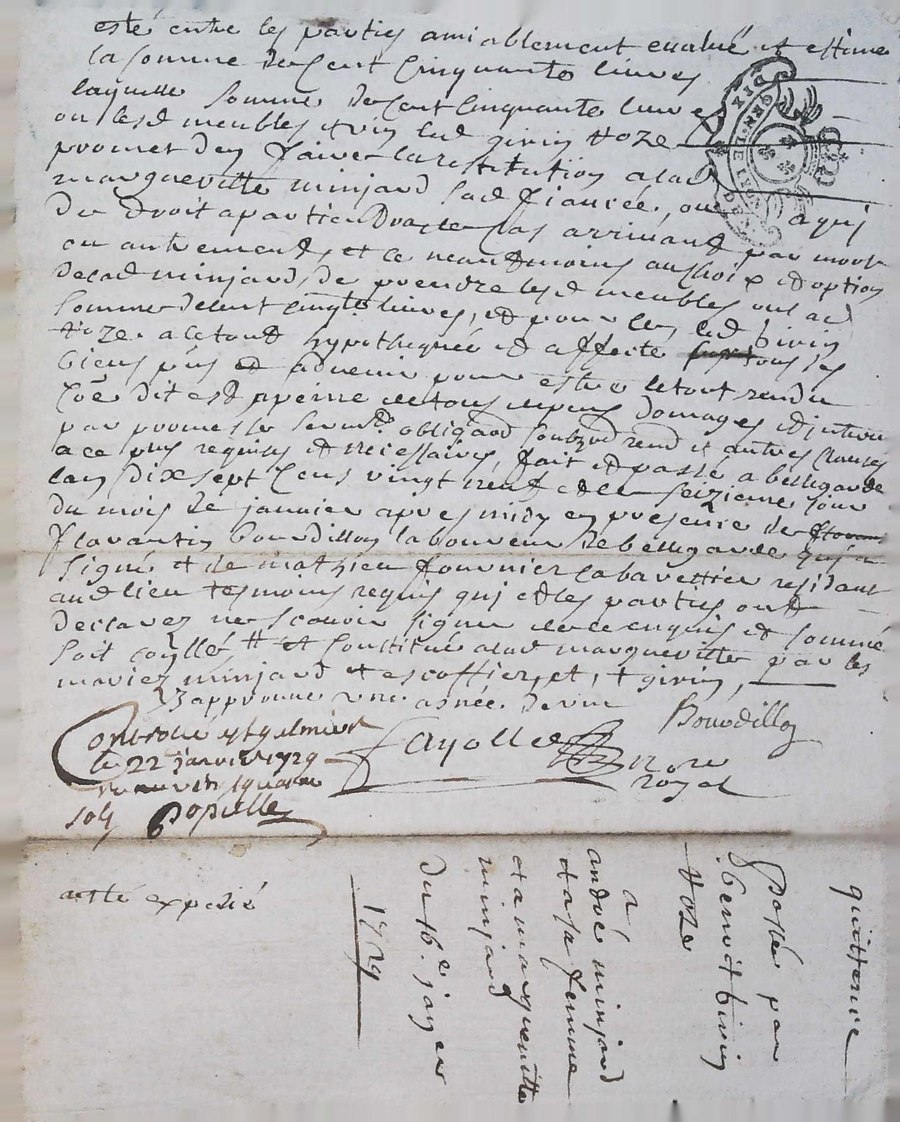 esté entre les parties amiablement evalué et estimé
la somme de Cent Cinquante livres
laquelle somme de Cent Cinquante livres
ou lesd meubles et vin led givin
promet den faire la restitution a lad
margueritte minjard sad fiancée, ou a quj
de droit apartiendra le Cas arrivant par mort
ou autrement, et ce neantmoins au choix et option
de lad minjard, de prendre lesd meubles ou lad
somme de Cent Cinqte livres, et pour ce led givin
a le tout hypothequé et affecté tous ses
biens pnts et advenir pour estre le tout rendu
Coē dit est a peine de tous depens domages et interets
par promesse serment obligaon soubzon renon et autres Clauses
a ce plus requises et necessaires, fait et passé a bellegarde
lan dix sept Cens vingt neuf et le seizieme jour
du mois de janvier apres midy en presence de
florantin bourdillon laboureur de bellegarde quj a
signé et de mathieu fournier Cabarettier residant
aud lieu tesmoins requis quj et les parties ont
declarez ne scavoir signer de ce enquis et sommé
soit Coñllé et Constitué a lad margueritte par les
mariez minjard et escoffier, et, + givin,
approuvé une asnée de vin
Bourdillon
Fayolle nore
royal
Controllé
le 22 janvier 1729
sols Populle
acte expedié
quittance
passé par
benoit givin
a
andré minjard
et a sa femme
et a margueritte
minjard
du 16e janvier
1729
DIX
GEN. DE RIO